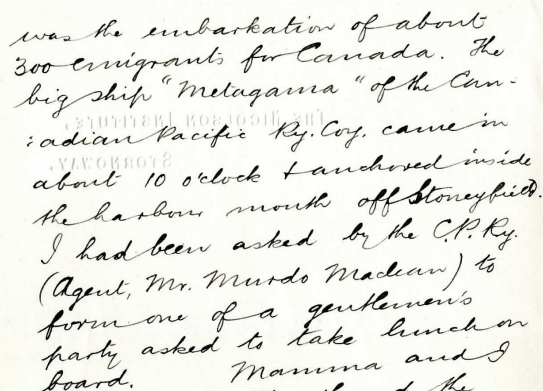 was the embarkation of about
300 emigrants for Canada. The
big ship "Metagama" of the Can-
:adian Pacific Ry. Coy. came in
THE NICOLSON INSTITUTE,
STORNOWAY.
about 10 o'clock & anchored inside
the harbour mouth off Stoneyfield.
I had been asked by the C.P. Ry.
(Agent, Mr. Murdo Maclean) to
form one of a gentlemen's
party asked to take lunch on
board. Mamma and I
the